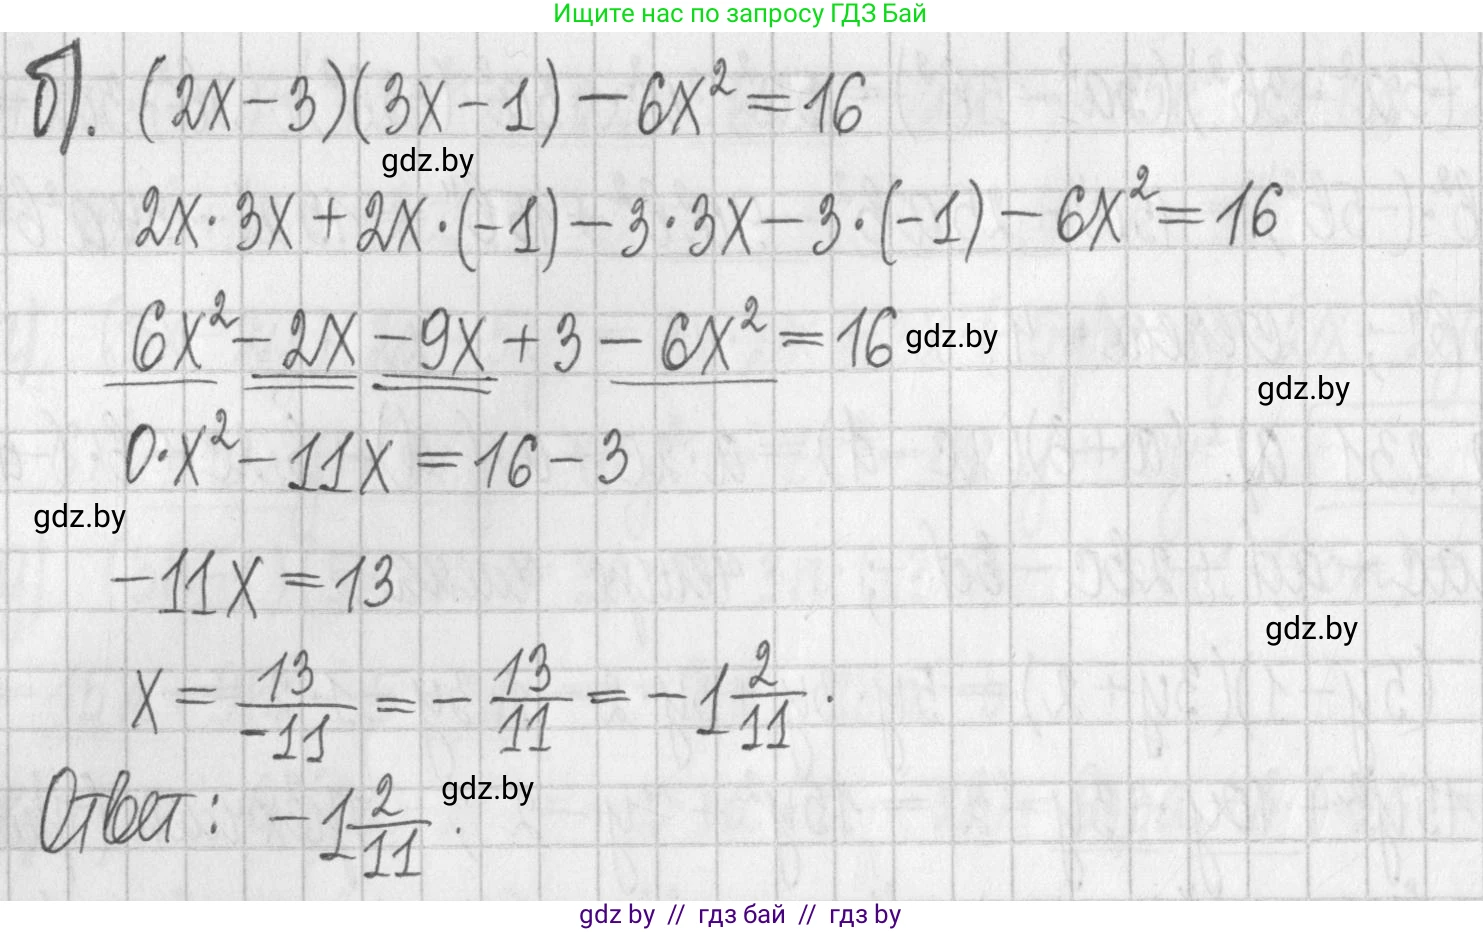 Ищите нас по запросу ГДЗ Бай
б). (2x-3)(3x-1)-6x²=16
gdz.by
2x·3x+2x·(-1)-3·3x-3·(-1)-6x²=16
6x²-2x-9x+3-6x²=16
gdz.by
gdz.by
0·x²-11x=16-3
gdz.by
-11x=13
gdz.by
x=13/-11=-13/11=-1 2/11.
gdz.by
Ответ: -1 2/11.
gdz by // гдз бай // гдз by